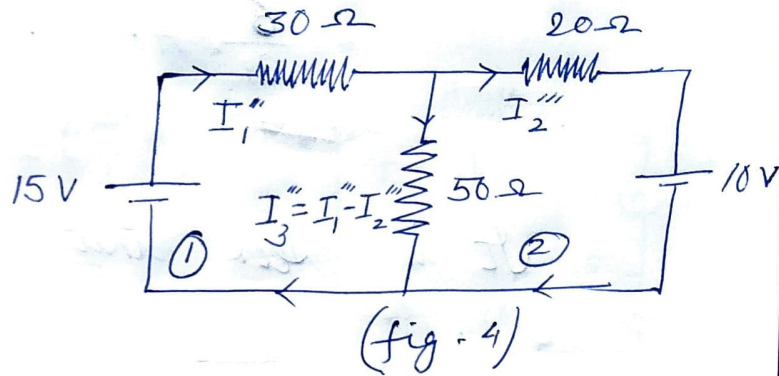 30 Ω
20 Ω
I₁'''
I₂'''
15 V
I₃''' = I₁''' - I₂'''
50 Ω
10 V
①
②
(fig. 4)